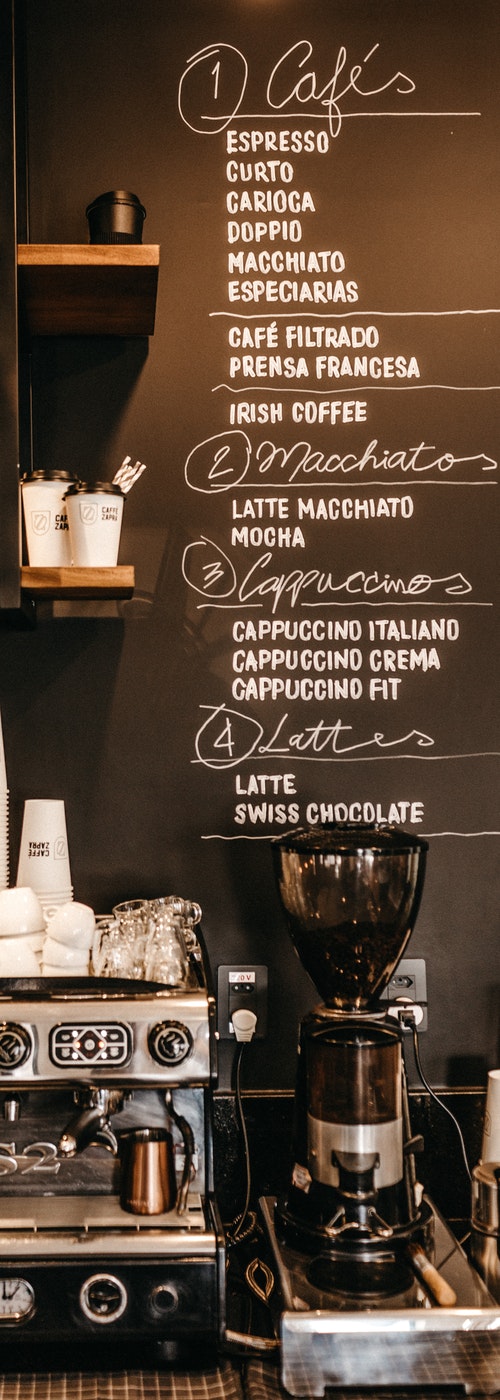 1 Cafés
ESPRESSO
CURTO
CARIOCA
DOPPIO
MACCHIATO
ESPECIARIAS
CAFÉ FILTRADO
PRENSA FRANCESA
IRISH COFFEE
2 Macchiatos
LATTE MACCHIATO
MOCHA
3 Cappuccinos
CAPPUCCINO ITALIANO
CAPPUCCINO CREMA
CAPPUCCINO FIT
4 Lattes
LATTE
SWISS CHOCOLATE
CAFFÈ
ZAPRA
CAFFÈ
ZAPRA
S2